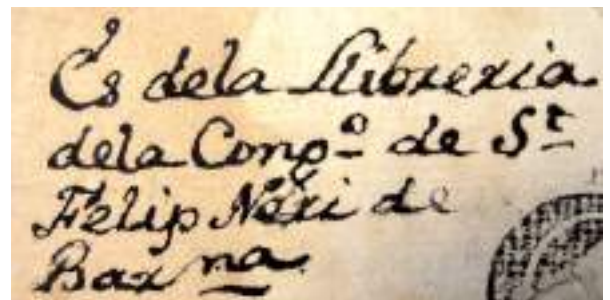 Es dela Llibreria
dela Congº de St
Felip Neri de
Barna